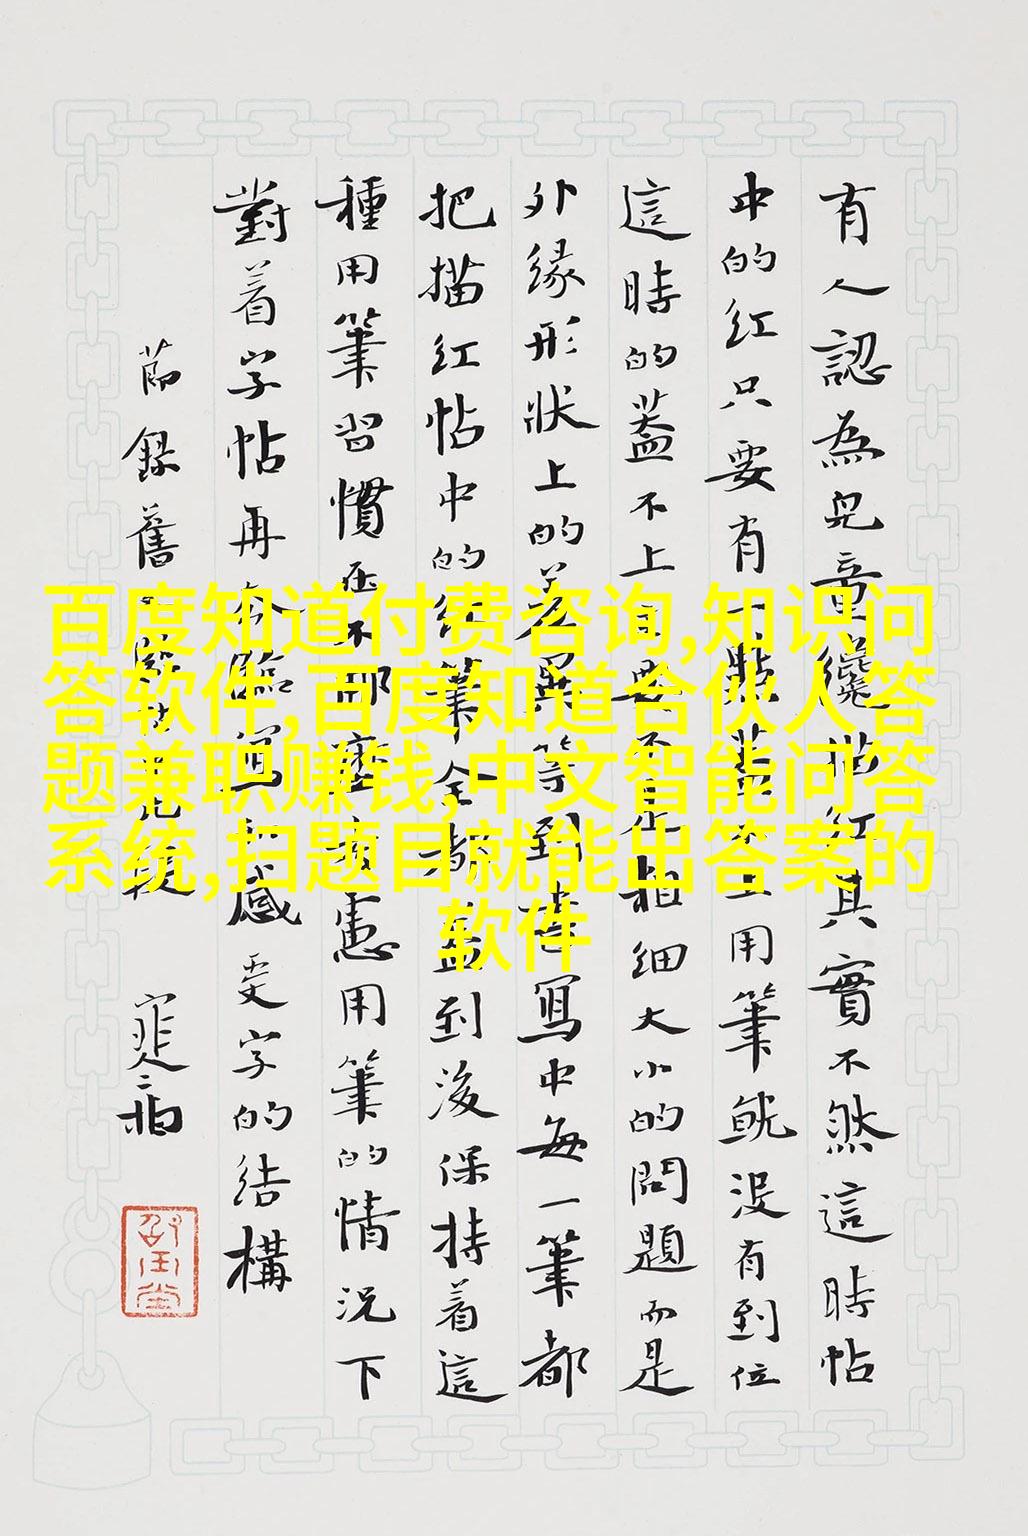 有人認為兒童纔描紅其實不然這時帖
中的紅只要有一點蓋不上用筆就沒有到位
這時的蓋不上不是粗細大小的問題而是
外緣形狀上的差異等到書寫中每一筆都
把描紅帖中的筆全都蓋到後保持着這
種用筆習慣在不那用筆的情況下
對着字帖再去臨寫和感受字的結構
節錄舊
百度知道付费咨询,知识问
答软件,百度知道合伙人答
题兼职赚钱,中文智能问答
系统,扫题目就能出答案的
软件